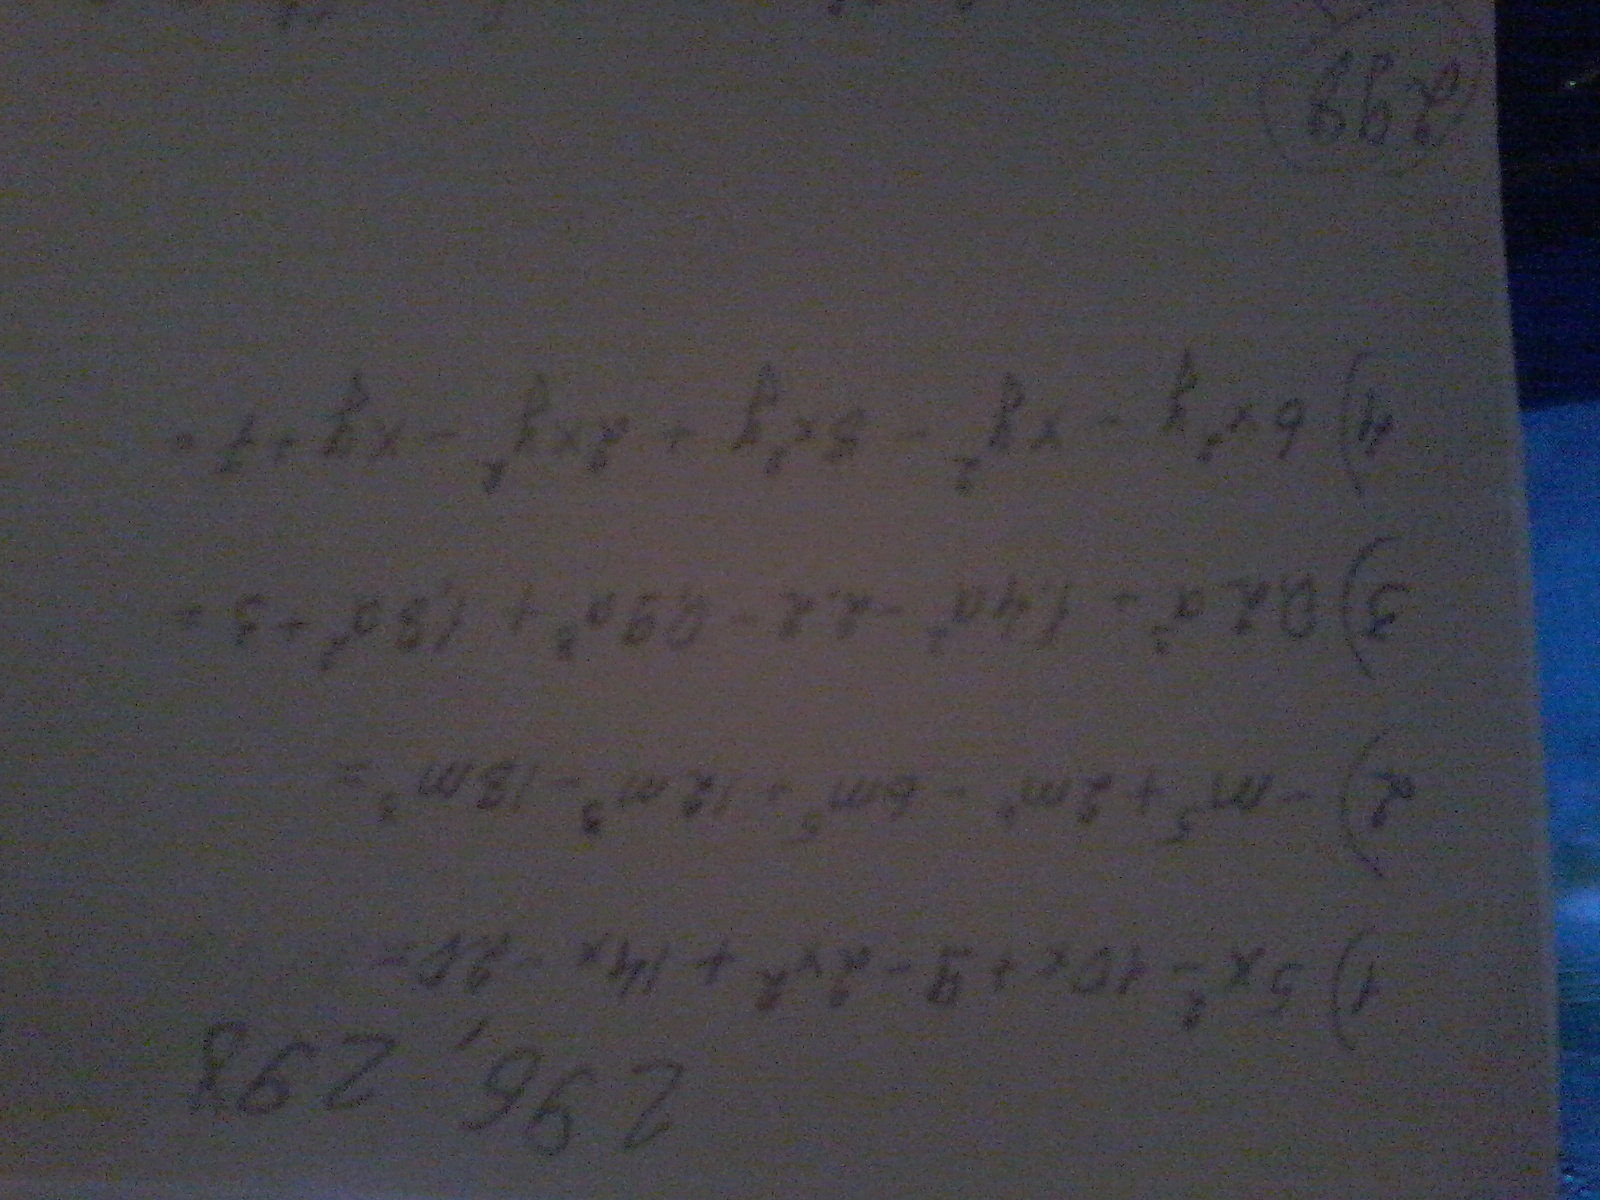 296, 298
1) 5x² - 10x + 9 - 2x² + 14x - 20 =
2) -m⁵ + 2m⁴ - 6m⁵ + 12m³ - 18m³ =
3) 0,2a³ + 1,4a² - 2,2 - 0,9a³ + 1,8a² + 3 =
4) 6x²y - xy² - 5x²y + 2xy² - xy + 7 =
299